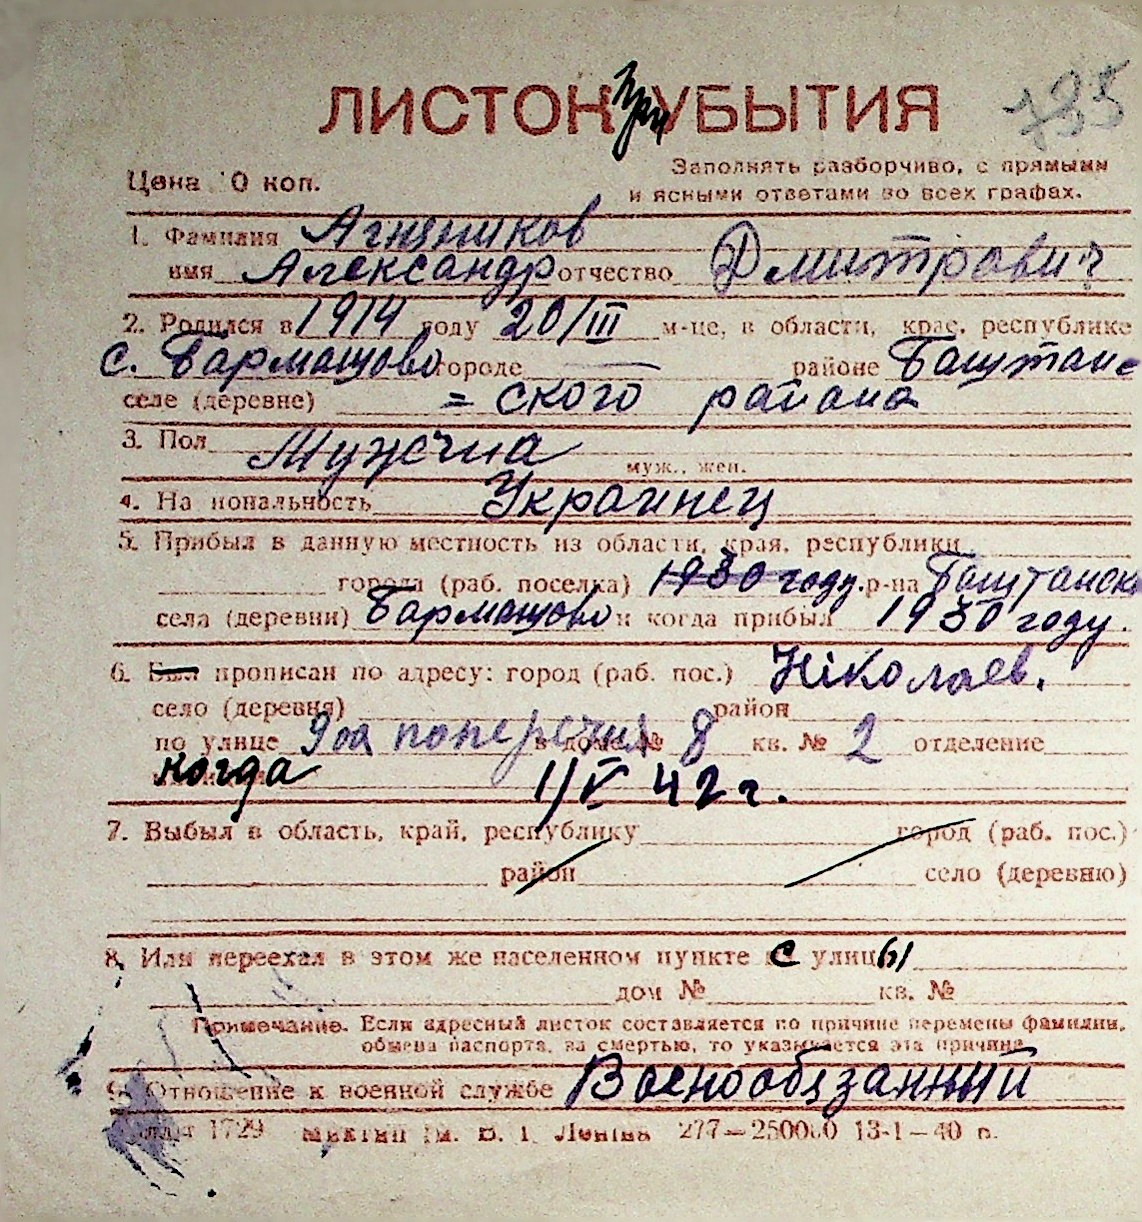 ЛИСТОК При УБЫТИЯ 785
Заполнять разборчиво, с прямыми
Цена 10 коп. и ясными ответами во всех графах.
1. Фамилия Агнеников
имя Александр отчество Дмитрович
2. Родился в 1914 году 20/III м-це, в области, крае, республике
с. Бармашово городе — районе Баштанс
селе (деревне) = ского района
3. Пол Мужсчна
муж., жен.
4. Национальность Украинец
5. Прибыл в данную местность из области, края, республики
города (раб. поселка) 1930 году. р-на Баштанск
села (деревни) Бармашово и когда прибыл 1930 году.
6. Был прописан по адресу: город (раб. пос.) Ніколаев.
село (деревня) район
по улице 9оа поперечия в доме № 8 кв. № 2 отделение
когда 1/V 42 г.
7. Выбыл в область, край, республику город (раб. пос.)
район село (деревню)
8. Или переехал в этом же населенном пункте с улицы
дом № кв. №
Примечание. Если адресный листок составляется по причине перемены фамилии,
обмена паспорта, за смертью, то указывается эта причина
9. Отношение к военной службе Военообязанный
1729 Ім. В. І. Леніна 277—250000 13-1—40 р.